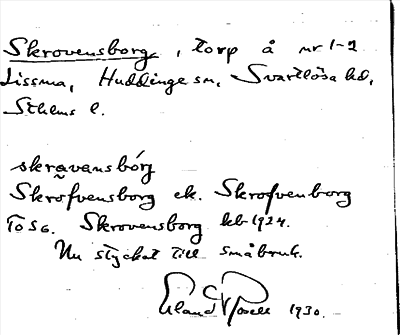 Skrovensborg, torp å nr 1-2
Lissma, Huddinge sn, Svartlösa hd,
Sthlms l.
skravansbórg
Skrofvensborg ek. Skrofvenborg
To 56. Skrovensborg kb 1924.
Nu styckat till småbruk.
Erland Rosell 1930.